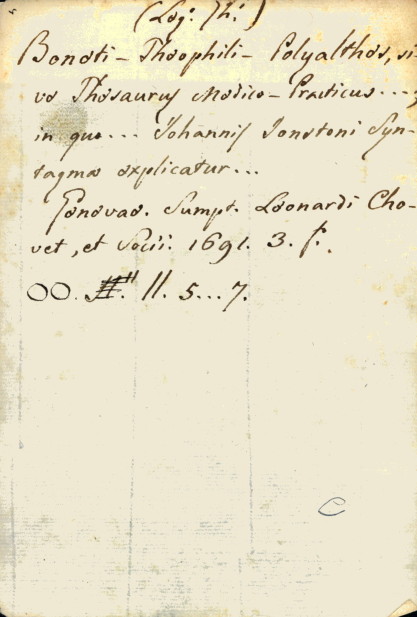 (Log: Th: )
Boneti - Theophili - Polyalthes, si-
ve Thesaurus Medico - Practicus ... ;
in quo ... Johannis Jonstoni Syn-
tagma explicatur ...
Genevae. Sumpt. Leonardi Cho-
vet, et Socii. 1691. 3. f.
OO. II. 5 ... 7.
C